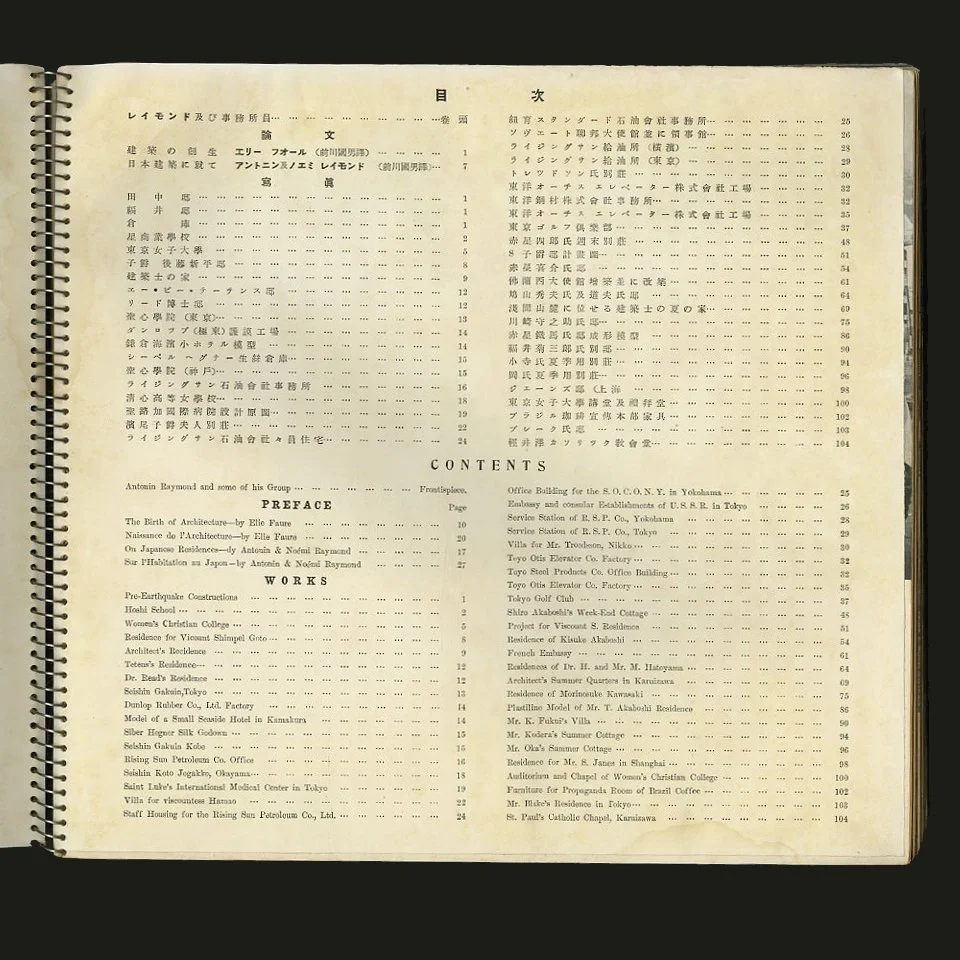 目 次
レイモンド及び事務所員… 卷頭
論 文
建築の創生 エリー フオール (前川國男譯) … 1
日本建築に就て アントニン及ノエミ レイモンド (前川國男譯)… 7
寫 眞
田中邸 … 1
福井邸 … 1
倉庫 … 1
星商業學校 … 2
東京女子大學 … 5
子爵 後藤新平邸 … 8
建築士の家 … 9
エー・ビー・テーテンス邸 … 12
リード博士邸 … 12
聖心學院 (東京)… 13
ダンロツプ(極東)護謨工場 … 14
鎌倉海濱小ホテル模型 … 14
シーベル ヘグナー生絲倉庫… 15
聖心學院 (神戸)… 15
ライジングサン石油會社事務所 … 16
清心高等女學校… 18
聖路加國際病院設計原圖… 19
濱尾子爵夫人別莊… 22
ライジングサン石油會社々員住宅… 24
紐育スタンダード石油會社事務所… 25
ソヴエート聯邦大使館並に領事館… 26
ライジングサン給油所 (横濱) … 28
ライジングサン給油所 (東京) … 29
トレツドソン氏別莊 … 30
東洋オーチス エレベーター株式會社工場 … 32
東洋鋼材株式會社事務所… 32
東洋オーチス エレベーター株式會社工場 … 35
東京ゴルフ倶樂部… 37
赤星四郎氏週末別莊 … 48
S子爵邸計畫圖… 51
赤星喜介氏邸 … 54
佛蘭西大使館增築並に改築… 61
鳩山秀夫氏及道夫氏邸 … 64
淺間山麓に位せる建築士の夏の家… 69
川崎守之助氏邸… 75
赤星鐵馬氏邸成形模型 … 86
福井菊三郎氏別邸 … 90
小寺氏夏季用別莊 … 94
岡氏夏季用別莊… 96
ジェーンズ邸 (上海 … 98
東京女子大學講堂及禮拜堂… 100
ブラジル珈琲宣傳本部家具 … 102
ブレーク氏邸 … 103
輕井澤カソリツク教會堂… 104
CONTENTS
Antonin Raymond and some of his Group … Frontispiece.
PREFACE Page
The Birth of Architecture—by Elie Faure … 10
Naissance de l'Architecture—by Elie Faure … 20
On Japanese Residences—dy Antonin & Noémi Raymond … 17
Sur l'Habitation au Japon—by Antonin & Noémi Raymond … 27
WORKS
Pre-Earthquake Constructions … 1
Hoshi School … 2
Women's Christian College … 5
Residence for Vicount Shimpei Goto … 8
Architect's Recidence … 9
Tetens's Residence… 12
Dr. Read's Residence … 12
Seishin Gakuin,Tokyo … 13
Dunlop Rubber Co., Ltd. Factory … 14
Model of a Small Seaside Hotel in Kamakura … 14
Siber Hegner Silk Godown … 15
Seishin Gakuin Kobe … 15
Rising Sun Petroleum Co. Office … 16
Seishin Koto Jogakko, Okayama… 18
Saint Luke's International Medical Center in Tokyo … 19
Villa for viscountess Hamao … 22
Staff Housing for the Rising Sun Petroleum Co., Ltd. … 24
Office Building for the S. O. C. O. N. Y. in Yokohama … 25
Embassy and consular Establishments of U. S. S. R. in Tokyo … 26
Service Station of R. S. P. Co., Yokohama … 28
Service Station of R. S. P. Co., Tokyo … 29
Villa for Mr. Troedsson, Nikko… 30
Toyo Otis Elevator Co. Factory… 32
Toyo Steel Products Co. Office Building … 32
Toyo Otis Elevator Co. Factory… 35
Tokyo Golf Club … 37
Shiro Akaboshi's Week-End Cottage … 48
Project for Viscount S. Residence … 51
Residence of Kisuke Akaboshi … 54
French Embassy … 61
Residences of Dr. H. and Mr. M. Hatoyama … 64
Architect's Summer Quarters in Karuizawa … 69
Residence of Morinosuke Kawasaki … 75
Plastiline Model of Mr. T. Akaboshi Residence … 86
Mr. K. Fukui's Villa … 90
Mr. Kodera's Summer Cottage … 94
Mr. Oka's Summer Cottage … 96
Residence for Mr. S. Janes in Shanghai … 98
Auditorium and Chapel of Women's Christian College … 100
Furniture for Propaganda Room of Brazil Coffee … 102
Mr. Blake's Residence in Tokyo… 103
St. Paul's Catholic Chapel, Karuizawa … 104